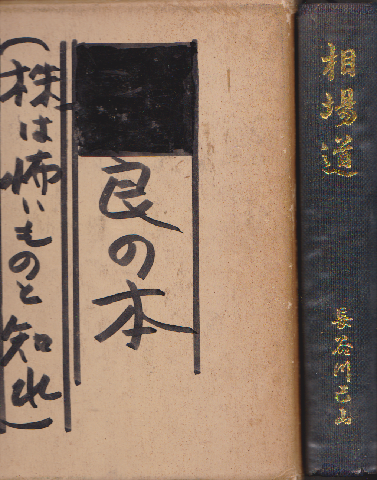 相場道
長谷川己山
良の本
(株は怖いものと知れ)